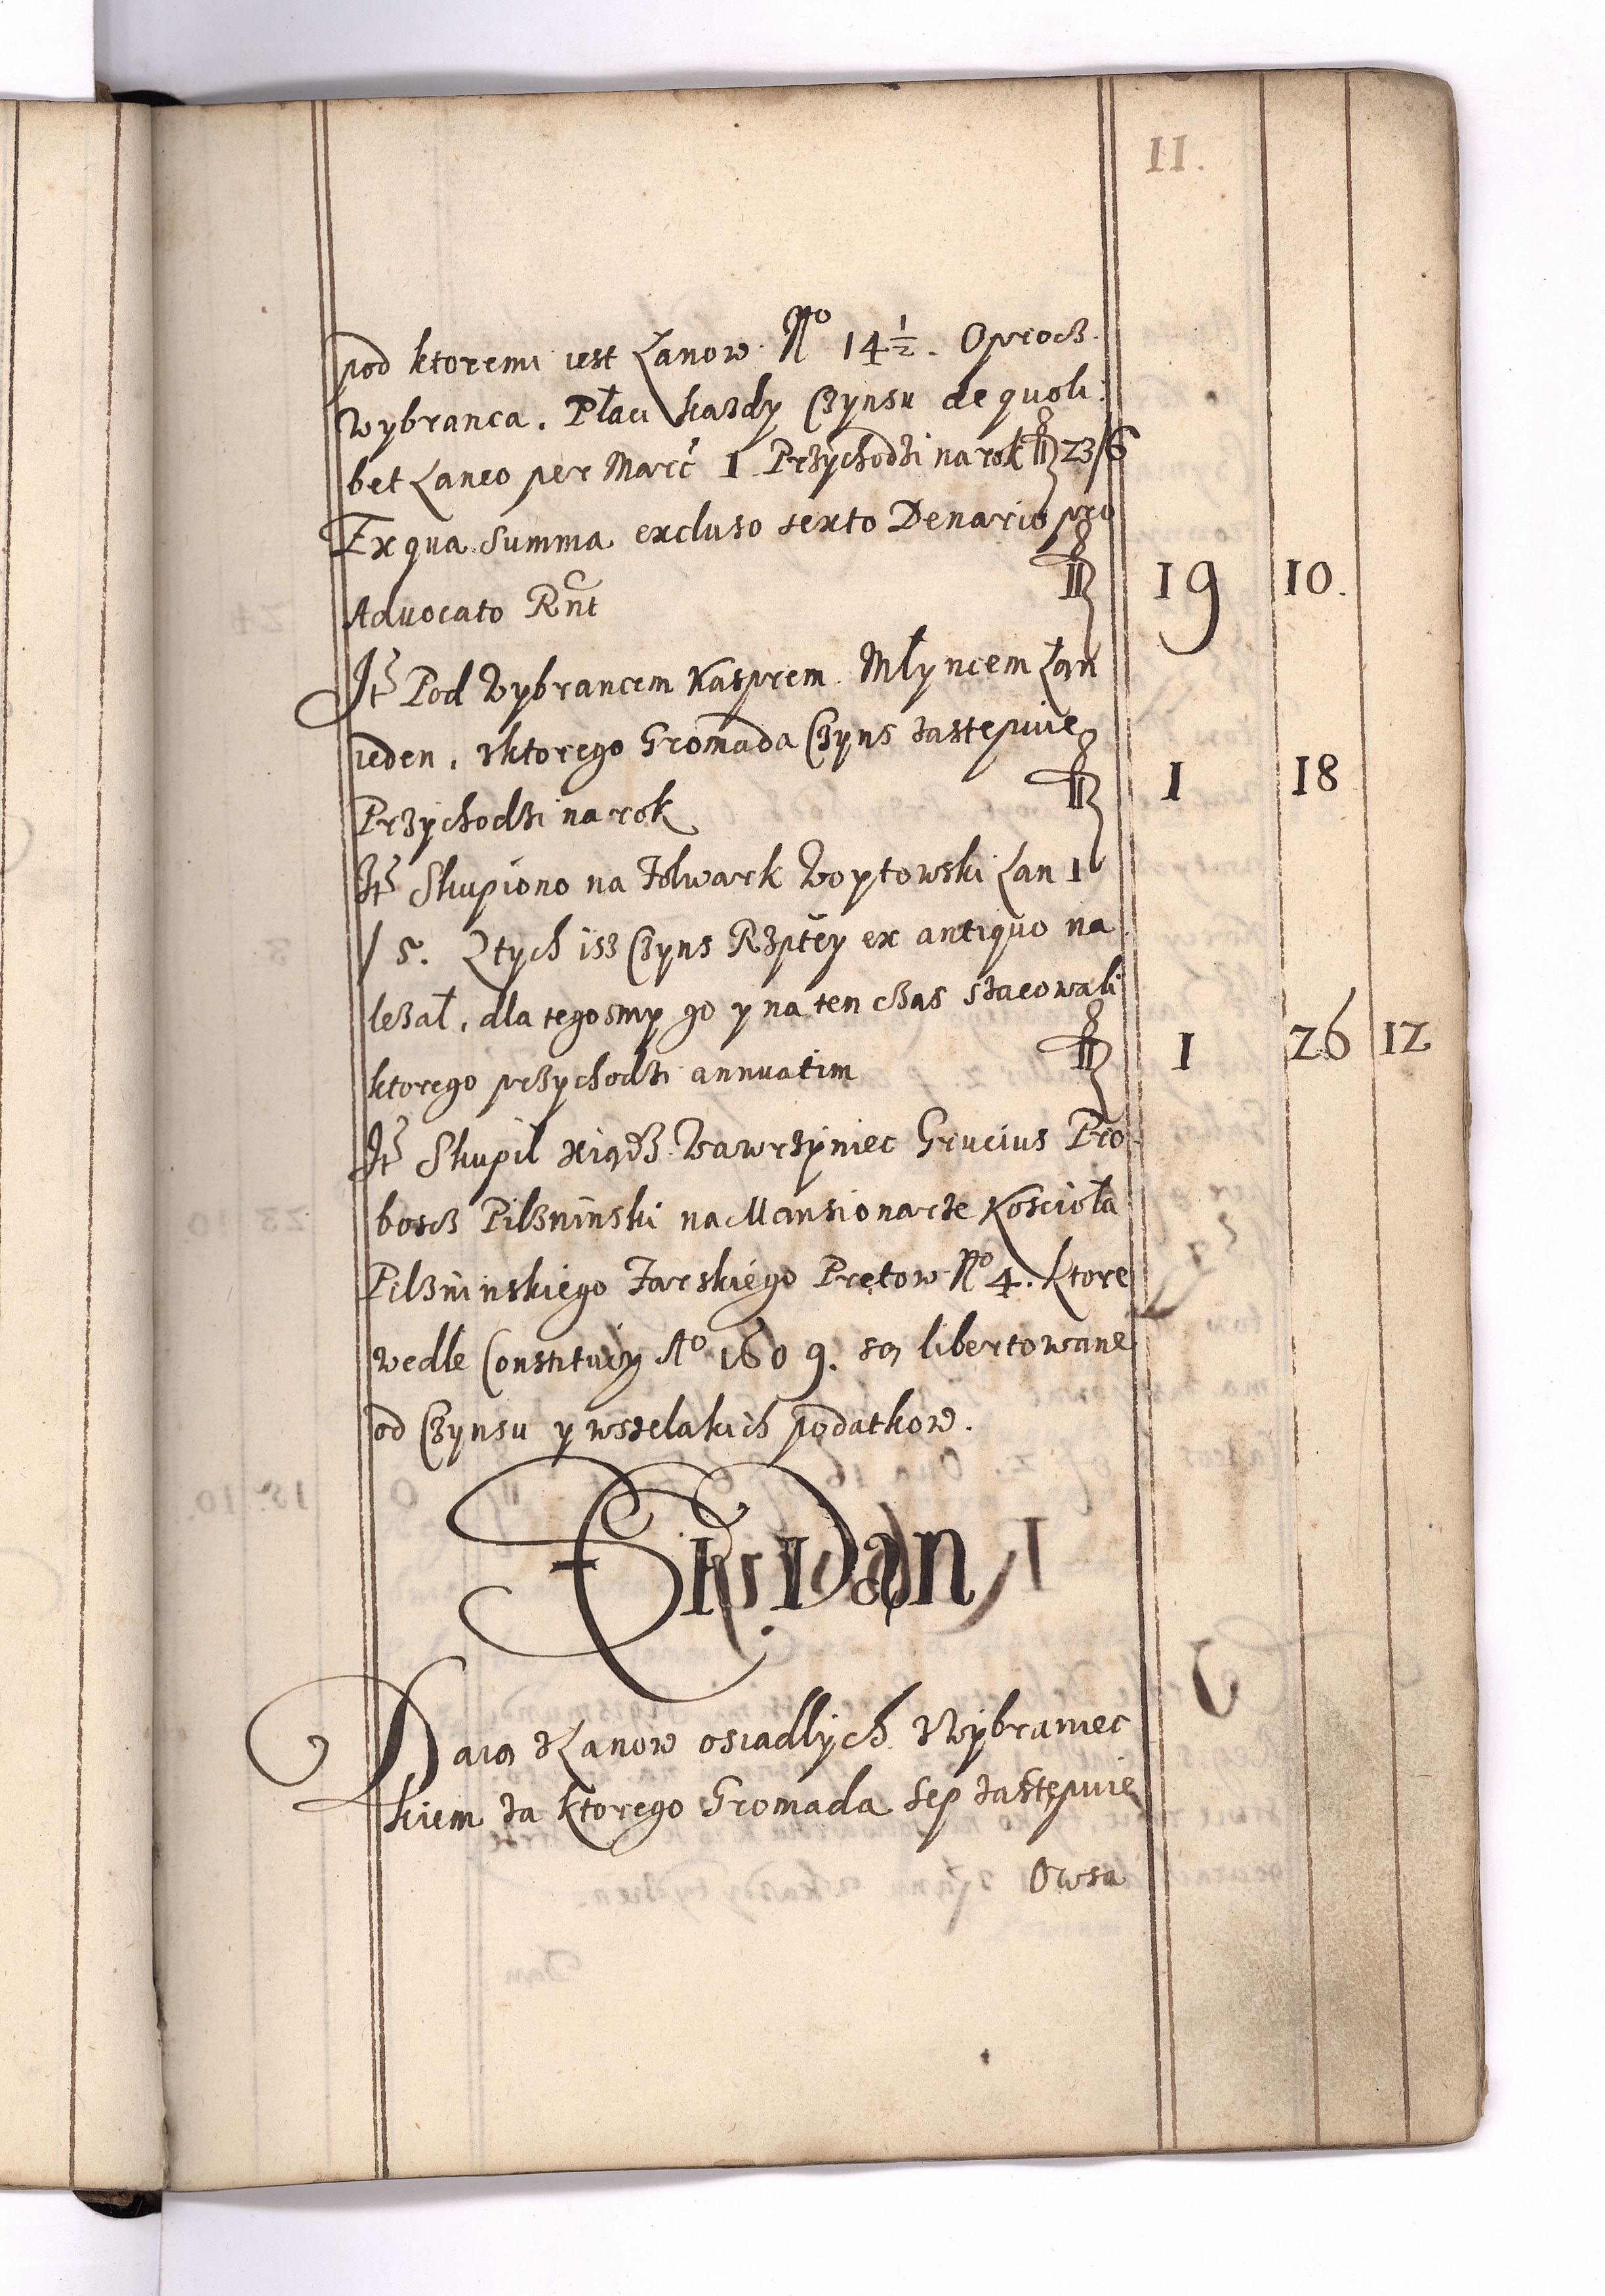 11.
pod ktoremi iest Łanow No 14½. Oprocz
Wybranca. Płaci kazdy Czynsu de quoli:
bet Laneo per Marc 1 Przychodzi na rok fl 23/6
Ex qua Summa excluso sexto Denario pro
Advocato Rnt fl 19 10.
It Pod Wybrancem Kasprem Młyncem Łan
ieden, zktorego Gromada Czyns zastepuie
Przychodzi na rok fl 1 18
It Skupiono na Folwark Woytowski Łan 1
/ 5. Ztych isz Czyns Rzptey ex antiquo na
leżał, dla tegosmy go y na ten czas szacowali
ktorego przychodzi annuatim fl 1 26 12
It Skupil Xiądz Wawrzyniec Grucius Pro
boscz Pilzninski na Mansionarze Kościoła
Pilzninskiego Farskiego Prętow No 4. Ktore
wedle Constituciy Ao 1609. są libertowane
od Czynsu y wszelakich podatkow.
Daią z Łanow osiadłych z Wybraniec
kiem za ktorego Gromada Sep zastępuie
Owsa